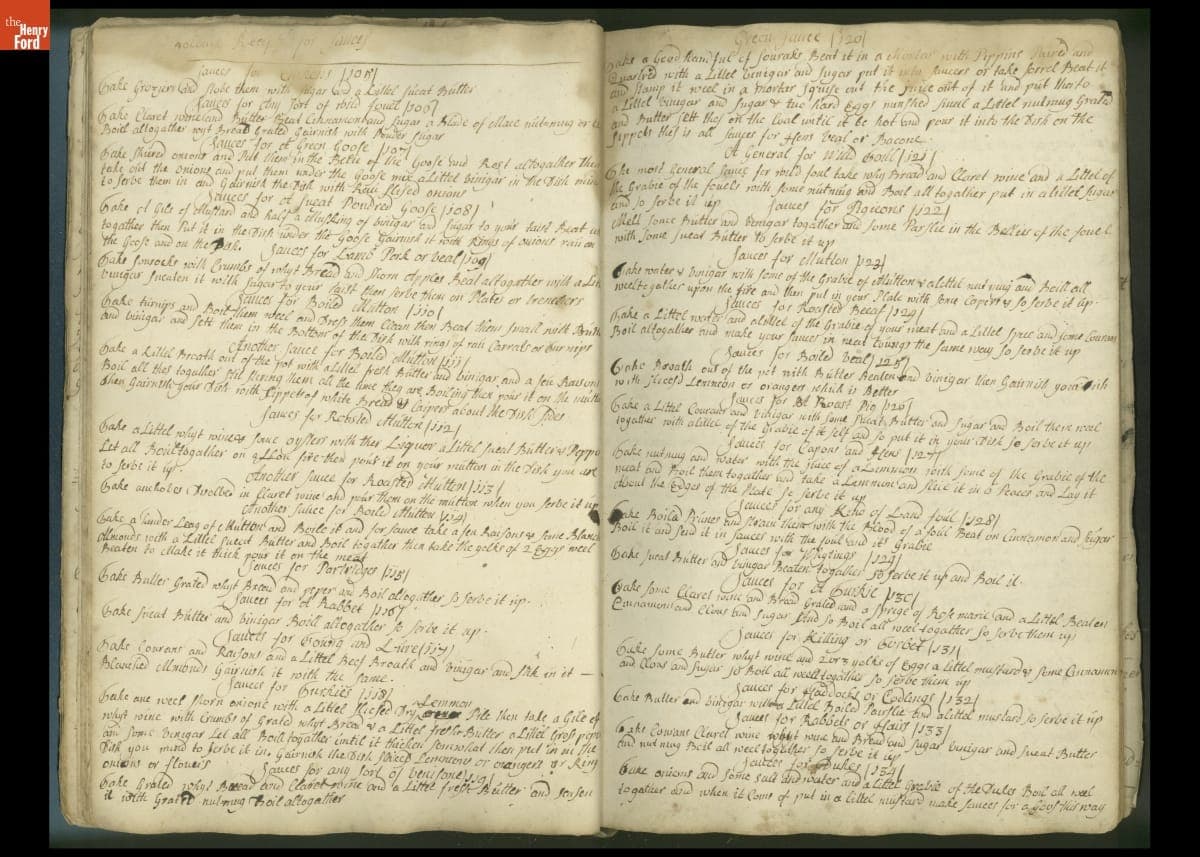 the
Henry
Ford
Receipts for Sauces
Sauces for Chickens |105|
Take Grozers and stobe them with sugar and a Littel sweat Butter
Sauces for Any Sort of wild foull |106|
Take Claret wine and Butter Beat Cinnamon and sugar a Blade of Mace nutmug or
Boil altogather with Bread Grated Gairnish with Pouder sugar
Sauces for A Green Goose |107|
Take shired onions and Put them in the Belie of the Goose and Rost altogather then
take out the onions and put them under the Goose mix a Littel vinigar in the Dish
to serbe them in and Gairnish the Dish with Raw slised onions
Sauces for A sweat Goose |108|
Take A Gile of Mustard and half a of vinigar and sugar to your taist Beat
together then Put it in the Dish under the Goose Gairnish it with Rings of onions raw on
the Goose and on the Dish.
Sauces for Lamb Pork or veal |109|
Take with Crumbs of whyt Bread and shorn Apples Beal altogather with a
vinigar sueaten it with sugar to your taist then serbe them on Plates or trenchers
Sauces for Boild Mutton |110|
Take turnips and Boil them weel and Dress them Clean then Beat them small with
and vinigar and sett them in the Bottom of the Dish with rings of raw Carrats or turnips
Another Sauce for Boild Mutton |111|
Take a Littel Broath out of the pot with a Littel fresh Butter and vinigar and a few Raisons
Boil all thes togather But stering them all the time they are Boiling then pour it on the mutton
then Gairnish your Dish with sippets of white Bread & Caipers about the Dish sides
Sauces for Rosted Mutton |112|
Take a Littel whyt wine & some oysters with ther Liquor a Littel sweat Butter & Peppe
Let all Boil togather on fire then pour it on your mutton in the Dish you are
to serbe it up.
Another Sauce for Roasted Mutton |113|
Take ancholes Disolbed in Claret wine and pour them on the mutton when you serbe it up
Another Sauce for Boild Mutton |114|
Take a tender Leag of Mutton and Boyle it and for sauce take a few Raisons & some Blanc
Almonds with a Littel sweat Butter and Boil togather then take the yolks of 2 Eggs weel
Beaten to Make it thick pour it on the meat
Sauces for Partridges |115|
Take Butter Grated whyt Bread and peper and Boil altogather so serbe it up.
Sauces for A Rabbet |116|
Take sweat Butter and vinigar Boill altogather so serbe it up.
Sauces for Toung and |117|
Take Courans and Raisons and a Littel Beef Broath and vinigar and in it
Blanched Almonds Gairnish it with the same.
Sauces for Turkies |118|
Take one weel shorn onione with a Littel slised Dry Lemmon Pile then take a Gile of
whyt wine with Crumbs of Grated whyt Bread & a Littel fresh Butter a Littel Gross peper
and some vinigar Let all Boil togather until it thicken somwhat then put in in the
Dish you mind to serbe it in. Gairnish the Dish sliced Lemmons or orangers or Ring
onions or flowers
Sauces for any sort of venisone |119|
Take Grated whyt Bread and Claret wine and a Littel fresh Butter and
it with Grated nutmug Boil altogather
Green Sauce |120|
Take a Good handful of souraks Beat it in a Mortar with Pippins Paired and
Quartred with a Littel vinigar and sugar put it into saucers or take sorrel Beat it
and stamp it weel in a mortar squise out the juice out of it and put therto
a Littel vinigar and sugar & two hard Eggs minshed small a Littel nutmug Grated
and Butter sett thes on the Coal until it be hot and pour it into the Dish on the
sippets this is all sauces for Hens veal or Bacone
A General for Wild foull |121|
The most General sauces for wild foul take whyt Bread and Claret wine and a Littel of
the Grabie of the fouels with some nutmug and Boil all together put in a littel sugar
and so serbe it up
Sauces for Pigeons |122|
Mell some Butter and vinigar togather and some Parslie in the Bellies of the fouel
with some sweat Butter to serbe it up
Sauces for Mutton |123|
Take water & vinigar with some of the Grabie of Mutton & a littel nutmug and Boill all
weel togather upon the fire and then put in your Plate with some Capers & so serbe it up.
Sauces for Roasted Beeaf |124|
Take a Littel water and a littel of the Grabie of your meat and a Littel spice and some Courans
Boil altogather and make your sauces in neat toungs the same way so serbe it up
Sauces for Boiled veal |125|
Take Broath out of the pot with Butter Beaten and vinigar then Gairnish your Dish
with sliced Lemmon or orangers which is Better
Sauces for A Roast Pig |126|
Take a Littel Courans and vinigar with some sweat Butter and sugar and Boil them weel
togather with a littel of the Grabie of it self and so put it in your Dish so serbe it up
Sauces for Capons and Hens |127|
Take nutmug and water with the juice of a Lemmon with some of the Grabie of the
meat and Boil them togather and take a Lemmon and slice it in 6 Peaces and Lay it
about the Edges of the Plate so serbe it up
Sauces for any Kind of Land foull |128|
Take Boild Prunes and strain them with the Blood of a foul Beat on Cinnamon and sugar
Boil it and send it in sauces with the foul and its Grabie
Sauces for |129|
Take sweat Butter and vinigar Beaten togather so serbe it up and Boil it.
Sauces for A Turkie |130|
Take some Claret wine and Bread Grated and a sprige of Rosemarie and a Littel Beaten
Cinnamon and Clove and sugar And so Boil all weel togather so serbe them up
Sauces for Killing or Turbet |131|
Take some Butter whyt wine and 2 or 3 yolks of Eggs a Littel mustard & some Cinnamon
and Clovs and sugar so Boil all weel togather so serbe them up
Sauces for Haddocks or Codlings |132|
Take Butter and vinigar with a Littel Boiled Parslie and a littel mustard so serbe it up
Sauces for Rabbets or Hairs |133|
Take Courans Claret wine whyt wine and Bread and sugar vinigar and sweat Butter
and nutmug Boil all weel togather so serbe it up
Sauces for Dukes |134|
Take onions and some salt and water and a Littel Grabie of the Dukes Boil all weel
togather and when it Coms of put in a littel mustard make sauces for a Goos this way